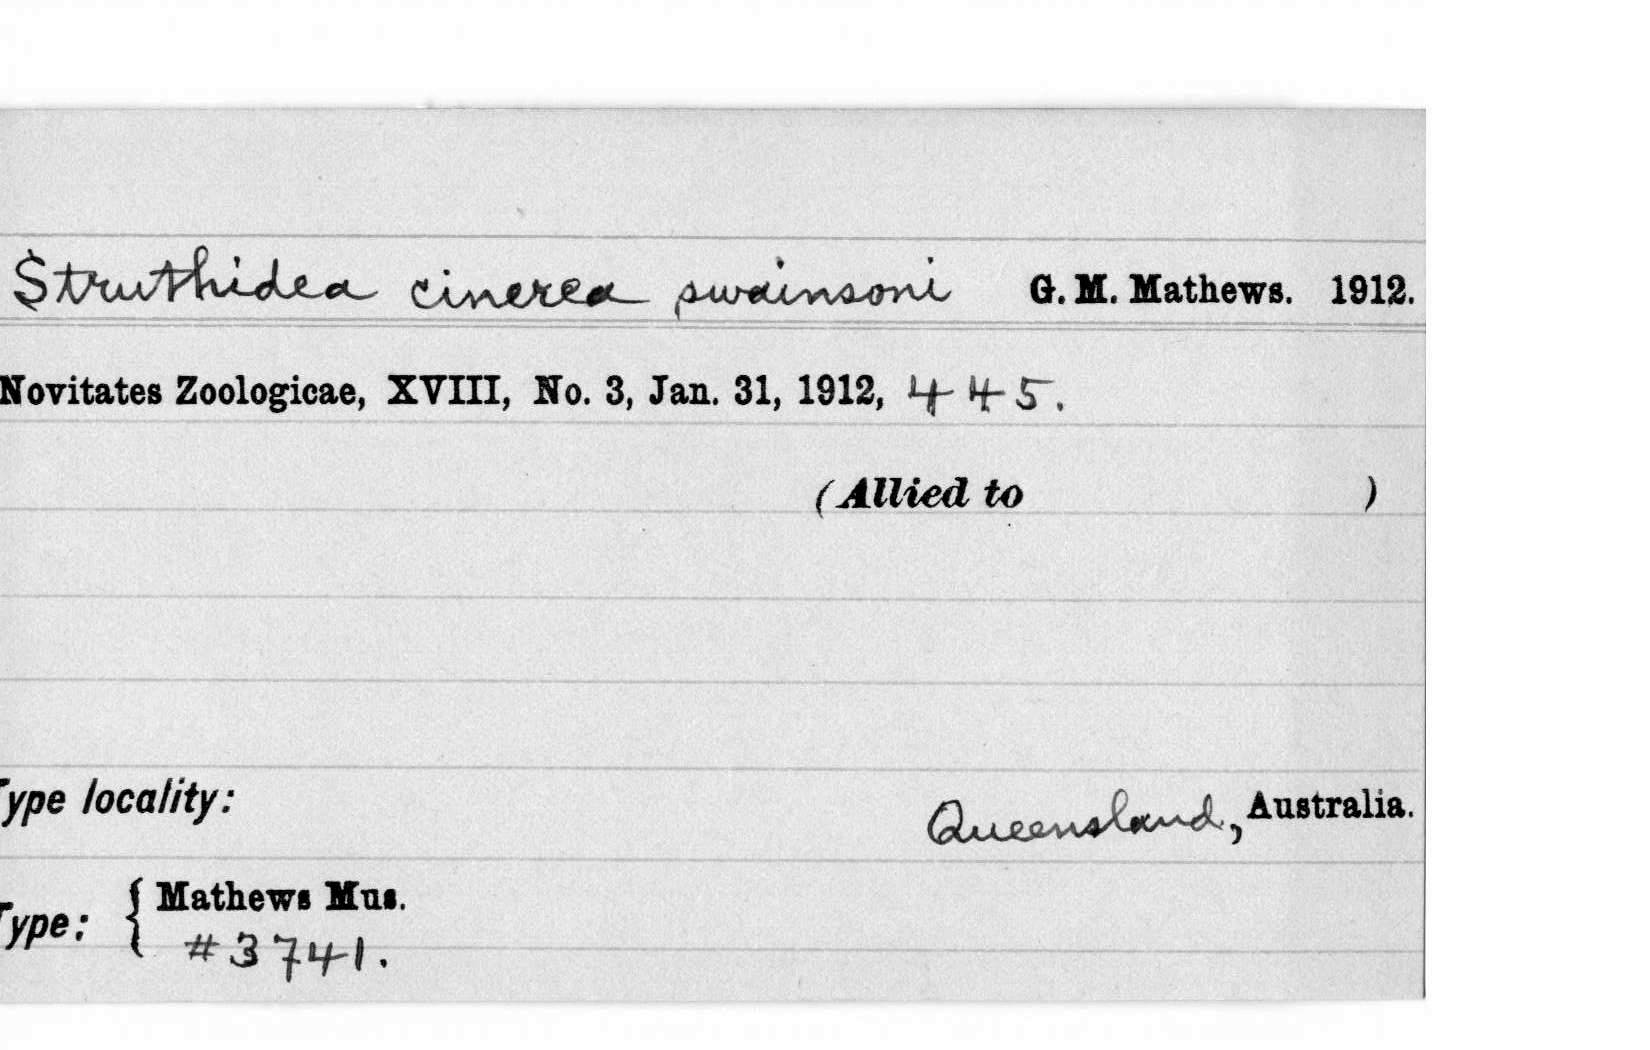 Struthidea cinerea swainsoni G. M. Mathews. 1912.
Novitates Zoologicae, XVIII, No. 3, Jan. 31, 1912, 445.
(Allied to )
Type locality:
Queensland, Australia.
Type: { Mathews Mus.
#3741.